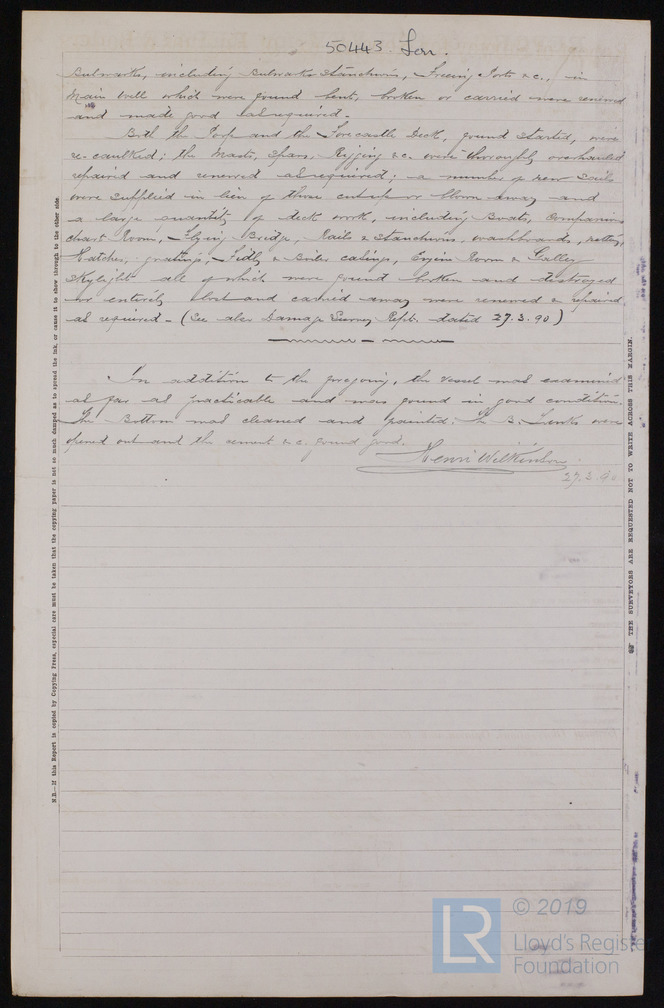 50443 Lon.
Bulwarks, including Bulwark Stanchions, Freeing Ports &c., in
Main Well which were found bent, broken or carried were renewed
and made good as required.
Both the Poop and the Forecastle Deck, found started, were
re-caulked; the Masts, Spars, Rigging &c. were thoroughly overhauled
repaired and renewed as required; a number of new sails
were supplied in lieu of those cut up or blown away and
a large quantity of deck work, including Boats, Companion
Chart Room, Flying Bridge, Rails & Stanchions, washboards,
Hatches, gratings, Fidly & Boiler casings, Engine Room & Galley
Skylights all of which were found broken and destroyed
or entirely lost and carried away were renewed & repaired
as required - (See also Damage Survey Rept. dated 27.3.90)
In addition to the foregoing, the vessel was examined
as far as practicable and was found in good condition.
The Bottom was cleaned and painted. The B. Tanks were
opened out and the cement &c. found good.
Henri Wilkinson.
27.3.90
N.B.—If this Report is copied by Copying Press, especial care must be taken that the copying paper is not so much damped as to spread the ink, or cause it to show through to the other side.
THE SURVEYORS ARE REQUESTED NOT TO WRITE ACROSS THIS MARGIN.
LR
© 2019
Lloyd's Register
Foundation